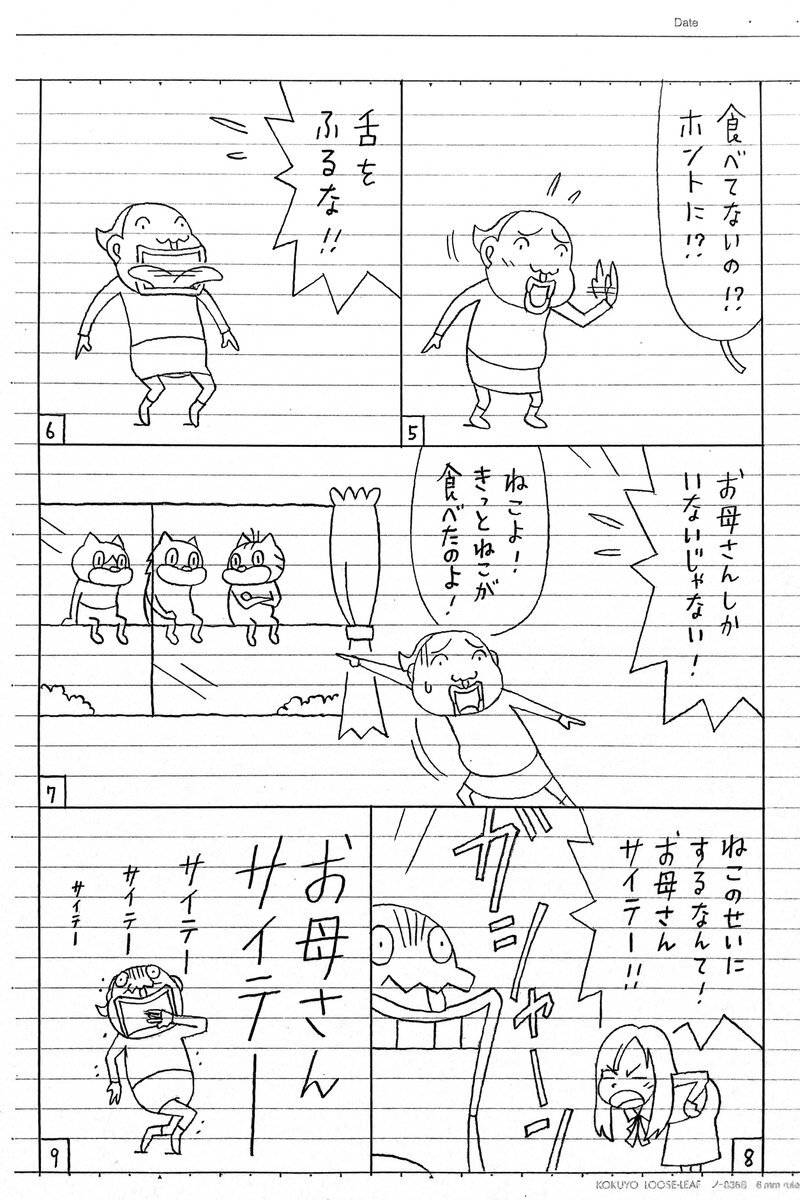 Date
食べてないの!?
ホントに!?
5
舌を
ふるな!!
6
お母さんしか
いないじゃない!
ねこよ!
きっとねこが
食べたのよ!
7
ねこのせいに
するなんて!
お母さん
サイテー!!
ガシャーン
8
お母さん
サイテー
サイテー
サイテー
サイテー
9
KOKUYO LOOSE-LEAF ノ-836B 6 mm ruled